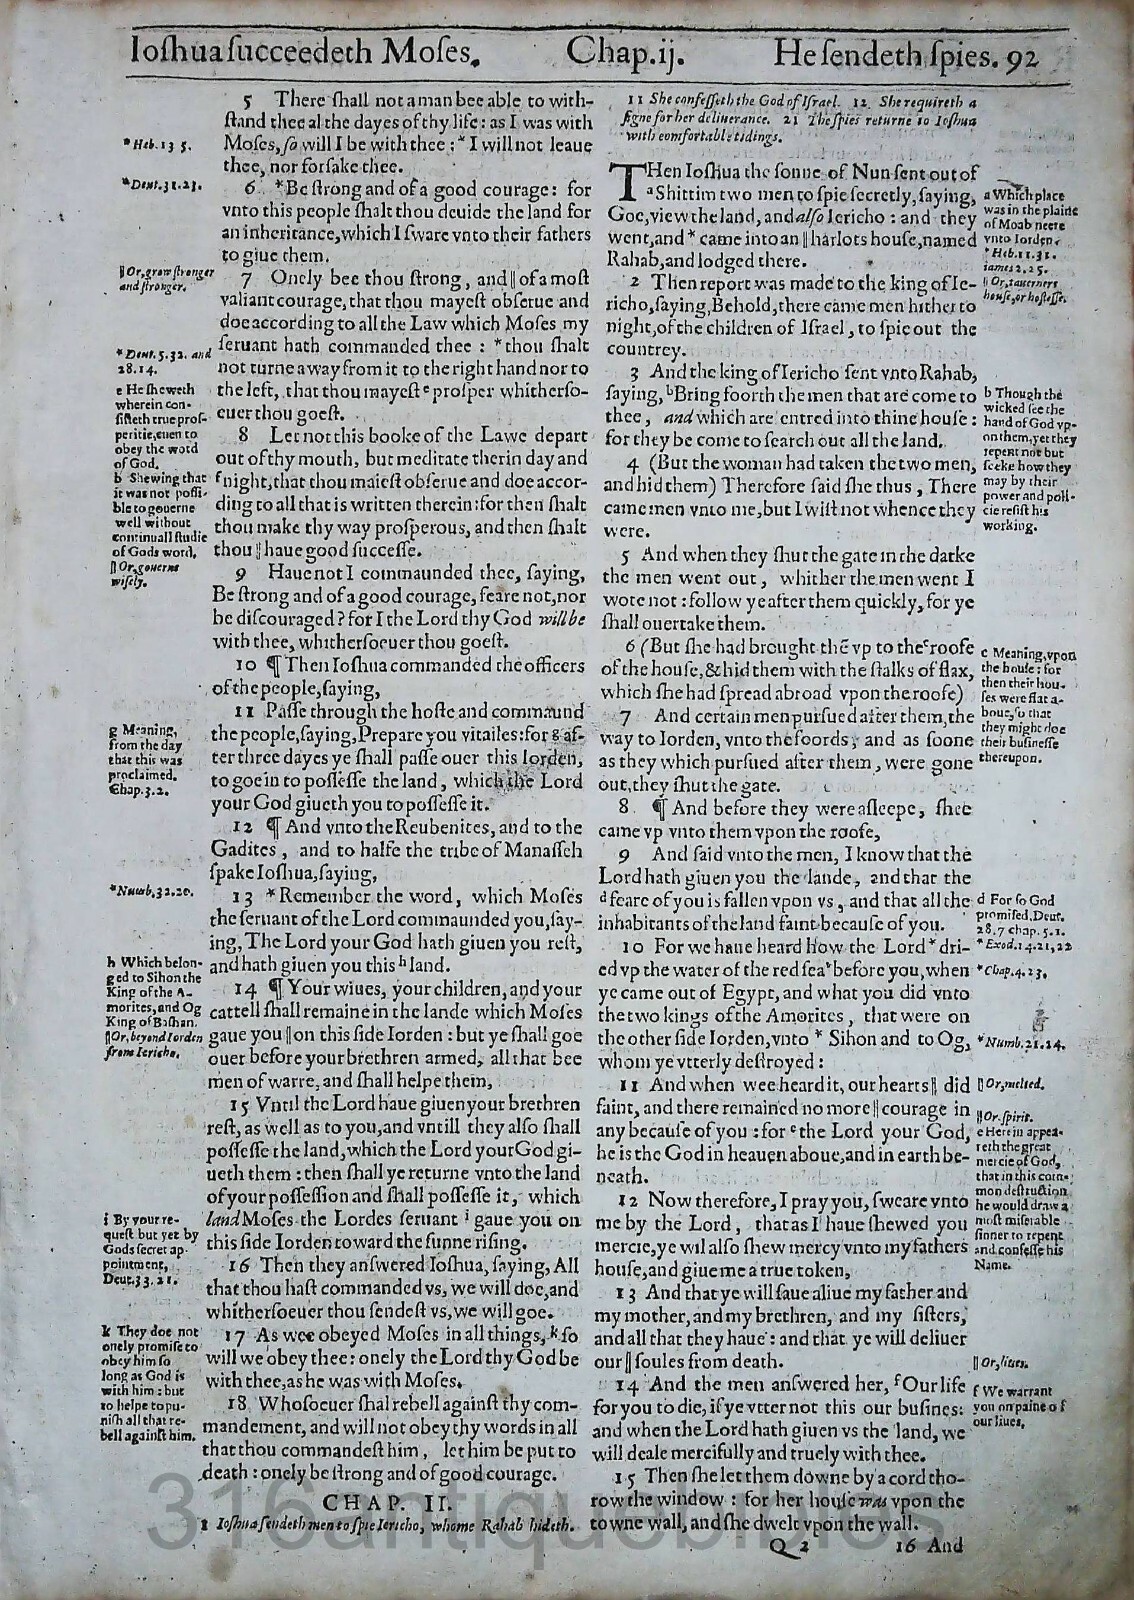 Ioſhua ſucceedeth Moſes. Chap.ij. He ſendeth ſpies. 92
5 There ſhall not a man bee able to with-
ſtand thee al the dayes of thy life: as I was with
Moſes, ſo will I be with thee: * I will not leaue
thee, nor forſake thee.
6 *Be ſtrong and of a good courage: for
vnto this people ſhalt thou deuide the land for
an inheritance, which I ſware vnto their fathers
to giue them.
7 Onely bee thou ſtrong, and || of a moſt
valiant courage, that thou mayeſt obſerue and
doe according to all the Law which Moſes my
ſeruant hath commanded thee: *thou ſhalt
not turne away from it to the right hand nor to
the left, that thou mayeſt e proſper whitherſo-
euer thou goeſt.
8 Let not this booke of the Lawe depart
out of thy mouth, but meditate therin day and
f night, that thou maieſt obſerue and doe accor-
ding to all that is written therein: for then ſhalt
thou make thy way proſperous, and then ſhalt
thou || haue good ſucceſſe.
9 Haue not I commaunded thee, ſaying,
Be ſtrong and of a good courage, feare not, nor
be diſcouraged? for I the Lord thy God will be
with thee, whitherſoeuer thou goeſt.
10 ¶ Then Ioſhua commanded the officers
of the people, ſaying,
11 Paſſe through the hoſte and commaund
the people, ſaying, Prepare you vitailes: for g af-
ter three dayes ye ſhall paſſe ouer this Iorden,
to goe in to poſſeſſe the land, which the Lord
your God giueth you to poſſeſſe it.
12 ¶ And vnto the Reubenites, and to the
Gadites, and to halfe the tribe of Manaſſeh
ſpake Ioſhua, ſaying,
13 *Remember the word, which Moſes
the ſeruant of the Lord commaunded you, ſay-
ing, The Lord your God hath giuen you reſt,
and hath giuen you this h land.
14 ¶ Your wiues, your children, and your
cattell ſhall remaine in the lande which Moſes
gaue you || on this ſide Iorden: but ye ſhall goe
ouer before your brethren armed, all that bee
men of warre, and ſhall helpe them,
15 Vntil the Lord haue giuen your brethren
reſt, as well as to you, and vntill they alſo ſhall
poſſeſſe the land, which the Lord your God gi-
ueth them: then ſhall ye returne vnto the land
of your poſſeſſion and ſhall poſſeſſe it, which
land Moſes the Lordes ſeruant i gaue you on
this ſide Iorden toward the ſunne riſing.
16 Then they anſwered Ioſhua, ſaying, All
that thou haſt commanded vs, we will doe, and
whitherſoeuer thou ſendeſt vs, we will goe.
17 As wee obeyed Moſes in all things, k ſo
will we obey thee: onely the Lord thy God be
with thee, as he was with Moſes.
18 Whoſoeuer ſhal rebell againſt thy com-
mandement, and will not obey thy words in all
that thou commandeſt him, let him be put to
death: onely be ſtrong and of good courage.
CHAP. II.
1 Ioſhua ſendeth men to ſpie Iericho, whome Rahab hideth.
*Heb.13 5.
*Deut.31.23.
|| Or, grow ſtronger
and ſtronger.
*Deut.5.32. and
28.14.
e He ſheweth
wherein con-
ſiſteth true proſ-
peritie, euen to
obey the word
of God.
b Shewing that
it was not poſſi-
ble to gouerne
well without
continuall ſtudie
of Gods word,
|| Or, gouerne
wiſely.
g Meaning,
from the day
that this was
proclaimed.
Chap.3.2.
*Numb.32.20.
h Which belon-
ged to Sihon the
King of the A-
morites, and Og
King of Baſhan.
|| Or, beyond Iorden
from Iericho.
i By your re-
queſt but yet by
Gods ſecret ap-
pointment,
Deut.33.21.
k They doe not
onely promiſe to
obey him ſo
long as God is
with him: but
to helpe to pu-
niſh all that re-
bell againſt him.
11 She confeſſeth the God of Iſrael. 12 She requireth a
ſigne for her deliuerance. 21 The ſpies returne to Ioſhua
with comfortable tidings.
THen Ioſhua the ſonne of Nun ſent out of
a Shittim two men to ſpie ſecretly, ſaying,
Goe, view the land, and alſo Iericho: and they
went, and * came into an || harlots houſe, named
Rahab, and lodged there.
2 Then report was made to the king of Ie-
richo, ſaying, Behold, there came men hither to
night, of the children of Iſrael, to ſpie out the
countrey.
3 And the king of Iericho ſent vnto Rahab,
ſaying, b Bring foorth the men that are come to
thee, and which are entred into thine houſe:
for they be come to ſearch out all the land.
4 (But the woman had taken the two men,
and hid them) Therefore ſaid ſhe thus, There
came men vnto me, but I wiſt not whence they
were.
5 And when they ſhut the gate in the darke
the men went out, whither the men went I
wote not: follow ye after them quickly, for ye
ſhall ouertake them.
6 (But ſhe had brought thē vp to the c roofe
of the houſe, & hid them with the ſtalks of flax,
which ſhe had ſpread abroad vpon the roofe)
7 And certain men purſued after them, the
way to Iorden, vnto the foords, and as ſoone
as they which purſued after them, were gone
out, they ſhut the gate.
8 ¶ And before they were aſleepe, ſhee
came vp vnto them vpon the roofe,
9 And ſaid vnto the men, I know that the
Lord hath giuen you the lande, and that the
d feare of you is fallen vpon vs, and that all the
inhabitants of the land faint becauſe of you.
10 For we haue heard how the Lord * dri-
ed vp the water of the red ſea * before you, when
ye came out of Egypt, and what you did vnto
the two kings of the Amorites, that were on
the other ſide Iorden, vnto * Sihon and to Og,
whom ye vtterly deſtroyed:
11 And when wee heard it, our hearts || did
faint, and there remained no more || courage in
any becauſe of you: for e the Lord your God,
he is the God in heauen aboue, and in earth be-
neath.
12 Now therefore, I pray you, ſweare vnto
me by the Lord, that as I haue ſhewed you
mercie, ye wil alſo ſhew mercy vnto my fathers
houſe, and giue me a true token,
13 And that ye will ſaue aliue my father and
my mother, and my brethren, and my ſiſters,
and all that they haue: and that ye will deliuer
our || ſoules from death.
14 And the men anſwered her, f Our life
for you to die, if ye vtter not this our buſines:
and when the Lord hath giuen vs the land, we
will deale mercifully and truely with thee.
15 Then ſhe let them downe by a cord tho-
row the window: for her houſe was vpon the
towne wall, and ſhe dwelt vpon the wall.
Q 2 16 And
a Which place
was in the plaine
of Moab neere
vnto Iorden.
*Heb.11.31.
iames 2.25.
|| Or, tauerners
houſe, or hoſteſſe.
b Though the
wicked ſee the
hand of God vp-
on them, yet they
repent not but
ſeeke how they
may by their
power and poli-
cie reſiſt his
working.
c Meaning, vpon
the houſe: for
then their hou-
ſes were flat a-
boue, ſo that
they might doe
their buſineſſe
thereupon.
d For ſo God
promiſed, Deut.
28.7 chap.5.1.
*Exod.14.21,22
*Chap.4.23.
*Numb.21.24.
|| Or, melted.
|| Or, ſpirit.
e Herein appea-
reth the great
mercie of God,
that in this com-
mon deſtruction
he would draw a
moſt miſerable
ſinner to repent
and confeſſe his
Name.
|| Or, liues.
f We warrant
you on paine of
our liues.
316antiquebibles